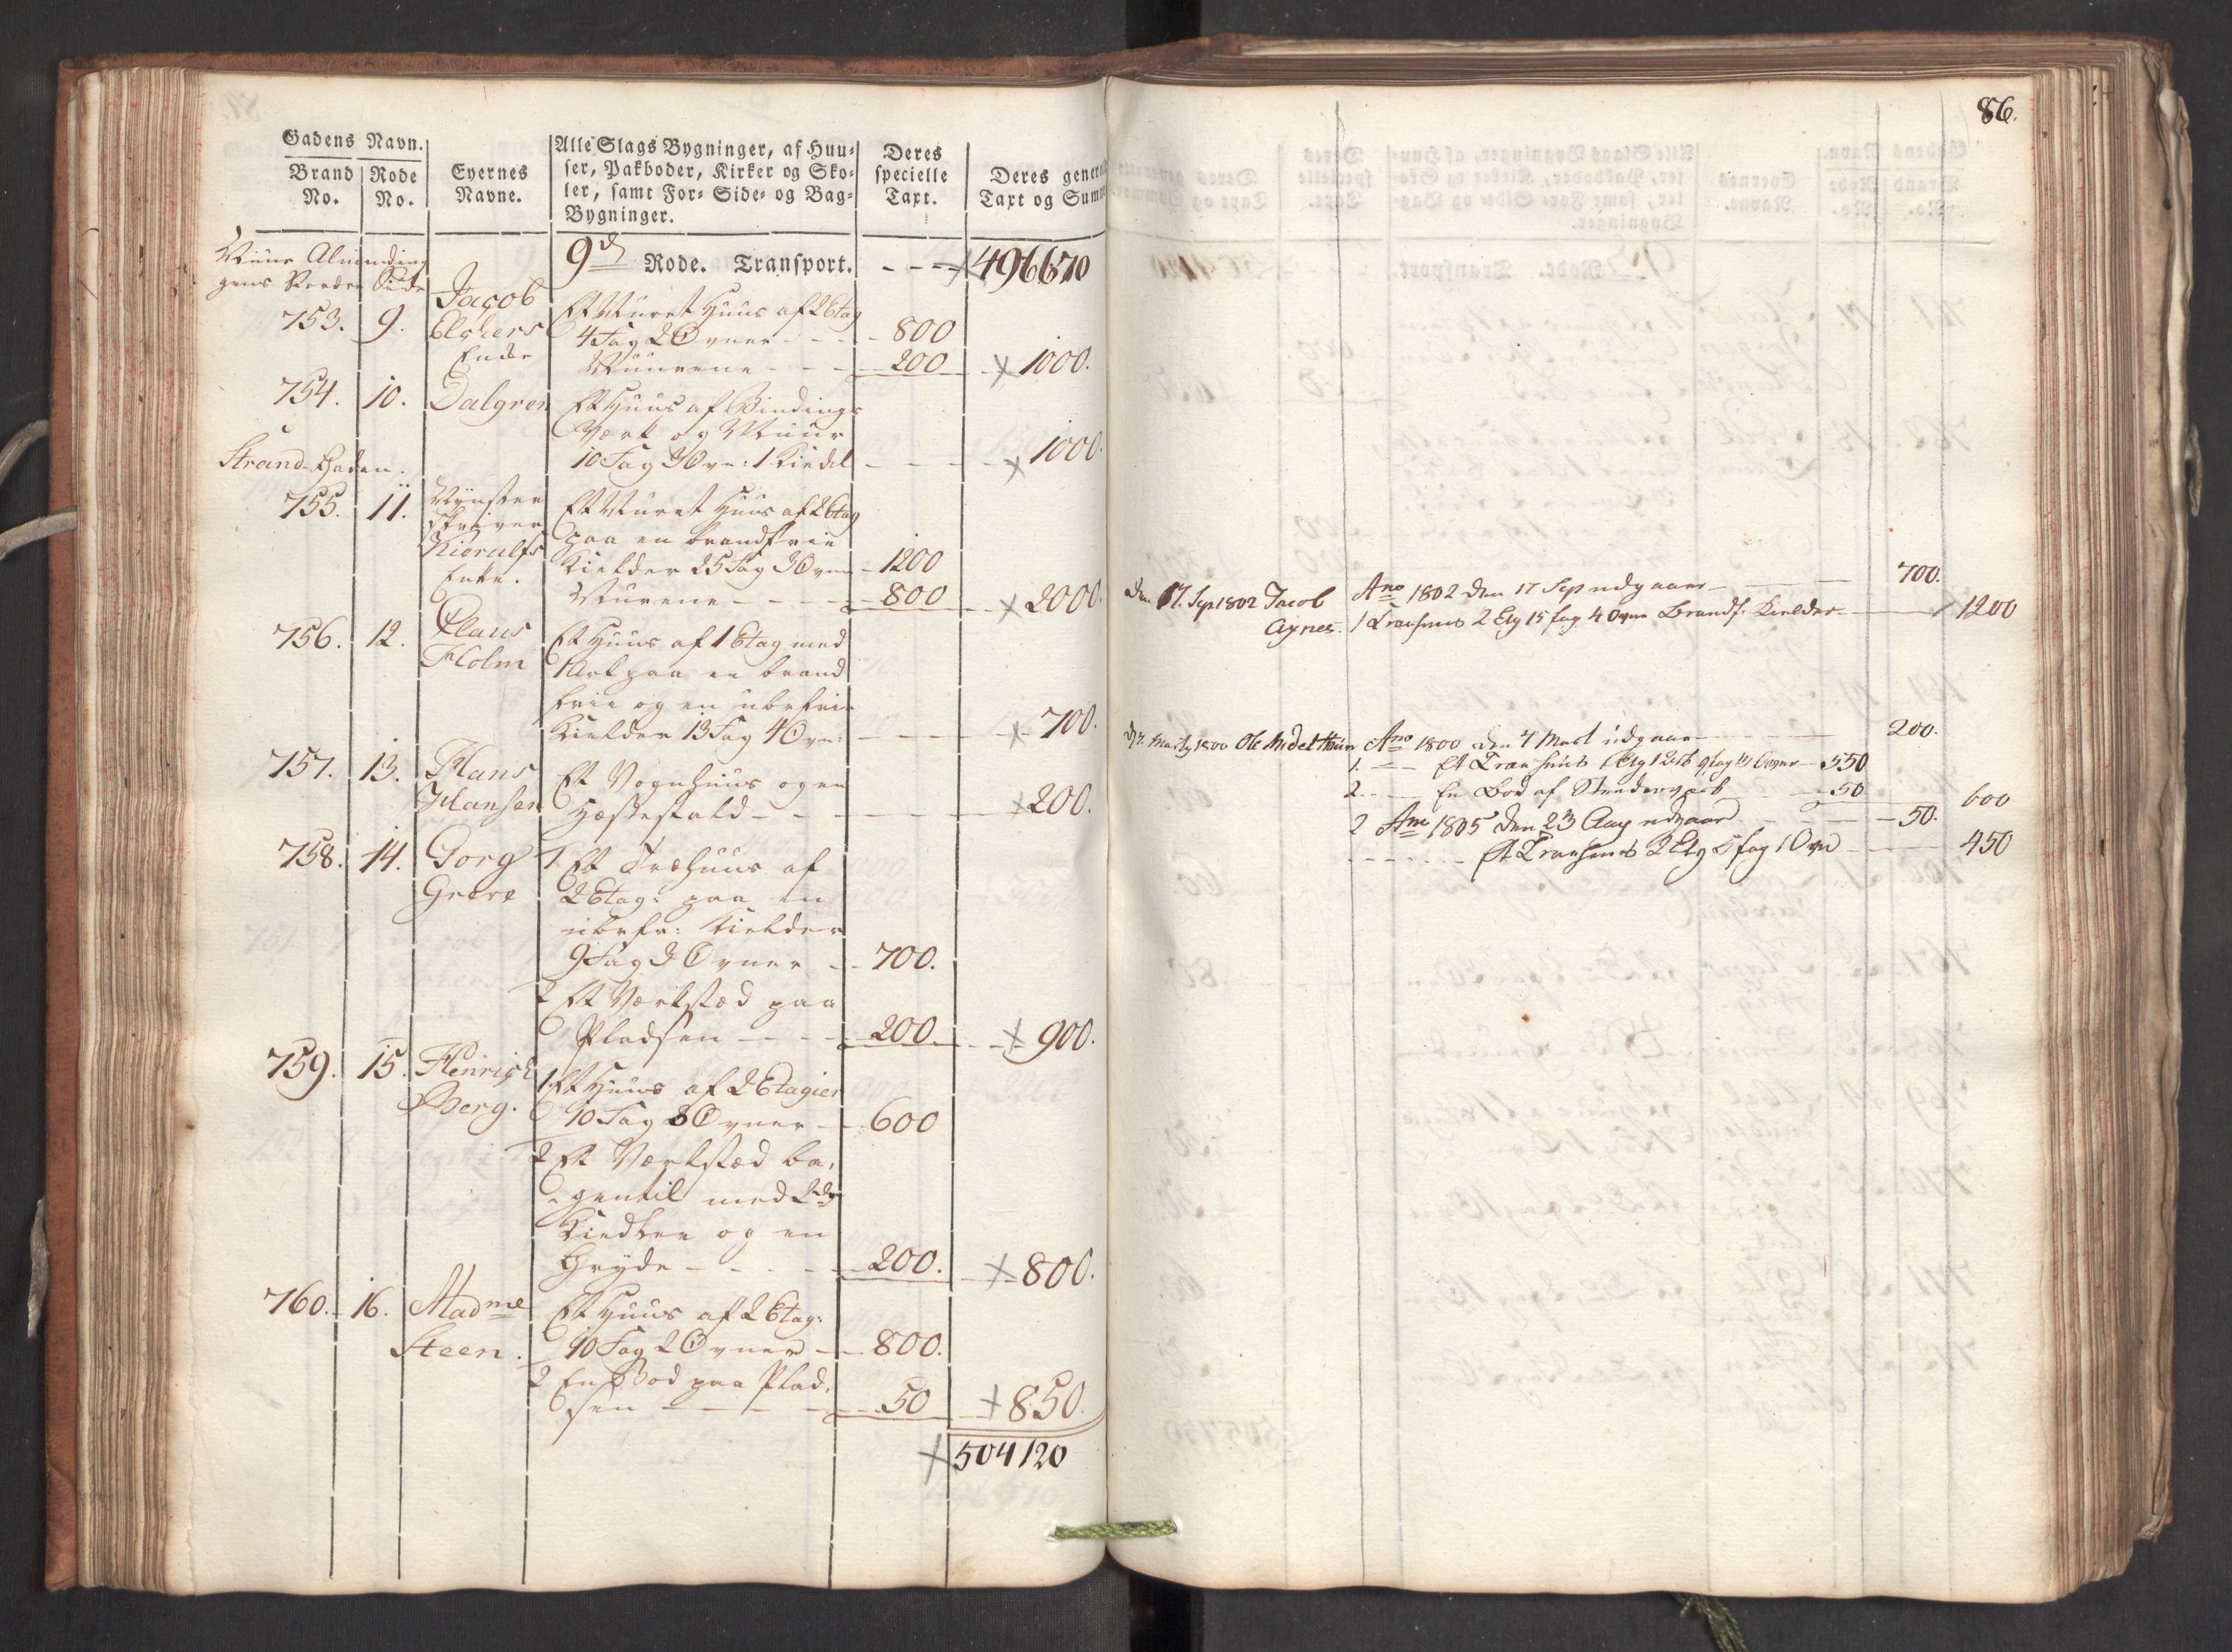 Gadens Navn.
Brand No.
Rode No.
Eyernes Navne.
Alle Slags Bygninger, af Huu-
ser, Pakboder, Kirker og Sko-
ler, samt For- Side- og Bag-
Bygninger.
Deres
specielle
Taxt.
Deres gener
Taxt og Sum
9d Rode. Transport. - - - 496670
Muur Alminding
gens Nordre Side
753. 9. Jacob Elghers Encke
Et Muret Huus af 2 Etag
4 Fag 2 Ovner - - - 800
Muurene - - - 200 1000.
754. 10. Dalgren
Et Huus af Bindings
Værk og Muur
10 Fag 3 Ovn: 1 Kiedel - - - 1000.
Strand-Gaden.
755. 11. Mynster
Skriver
Kierulfs
Enke.
Et Muret Huus af 2 Etag
paa en brandfrie
Kielder 25 Fag 3 Ovn - 1200
Murene - - - 800 2000.
756. 12. Claus
Holm
Et Huus af 1 Etag med
1 Ark paa en brand
frie og en ubrfrie
Kielder 13 Fag 4 Ovn: - - - 700.
757. 13. Hans
Hansen
Et Vognhuus og en
Hæstestald - - - 200.
758. 14. Gorg
Greve
1 Et Træhuus af
2 Etag: paa en
ubrfr: Kielder
9 Fag 3 Ovner - 700.
2 Et Værksted paa
Pladsen - - - 200 900.
759. 15. Henrich
Berg.
1. Et Huus af 2 Etagier
10 Fag 8 Ovner - 600
2 Et Værksted ba,
gentil med 2de
Kiedler og en
Gryde - - - 200. 800.
760. 16. Madme
Steen.
Et Huus af 2 Etag:
10 Fag 2 Ovner - 800.
2 En Bod paa Plad,
sen - - - 50 850.
504120
86.
Den 17. Sep. 1802 Jacob
Agnes.
Ano 1802 den 17 Sep udgaaer - - 700.
1 Træehuus 2 Etg 15 fag 4 Ovne Brandf. Kielder - 1200
d 7. Martz 1800 Ole Medelthuun
Ano 1800 den 7 Mart udgaaer - - 200.
1. - Et Træehuus 1 Etg 1 Qvist 9 fag 3 Ovner - 550
2 - - En Bod af Stenderværk - 50 600
2 Ano 1805 den 23 Aug udgaaer - - 50.
- - - Et Træehuus 2 Etg 5 fag 1 Ovn - - 450